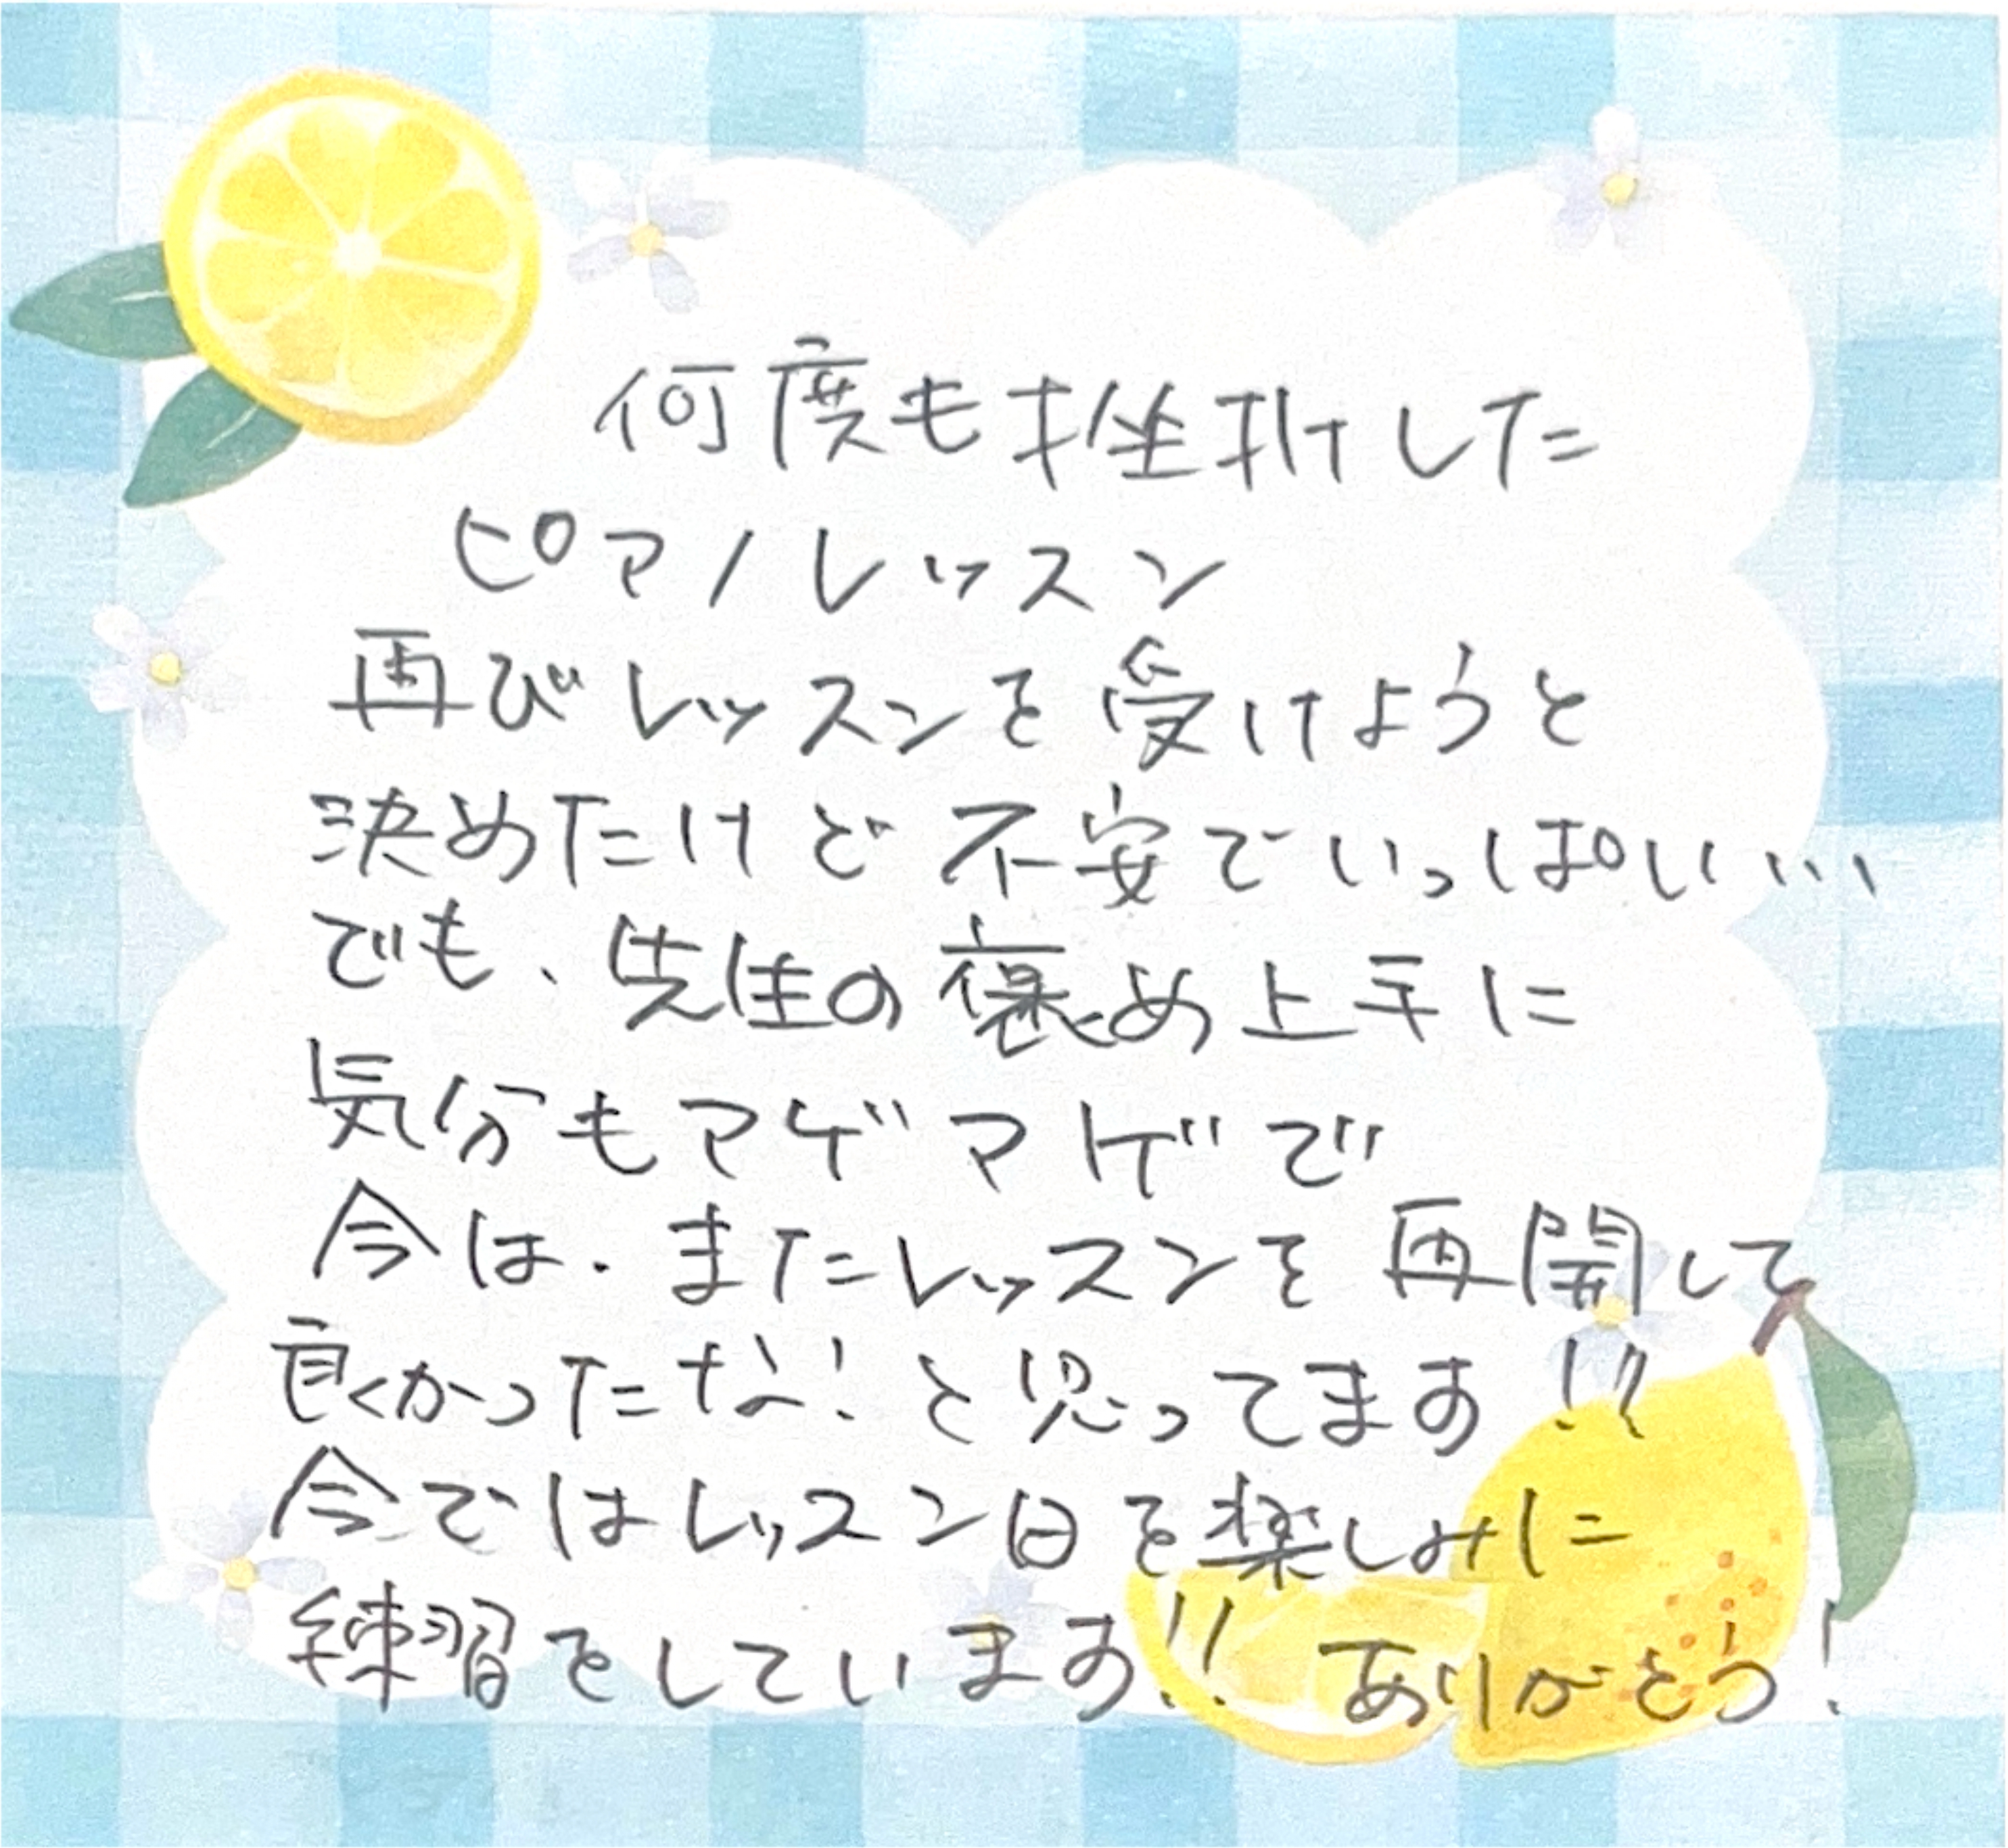 何度も挫折した
ピアノレッスン
再びレッスンを受けようと
決めたけど不安でいっぱい…
でも、先生の褒め上手に
気分もアゲアゲで
今は、またレッスンを再開して
良かったな！と思ってます!!
今ではレッスン日を楽しみに
練習をしています!! ありがとう!